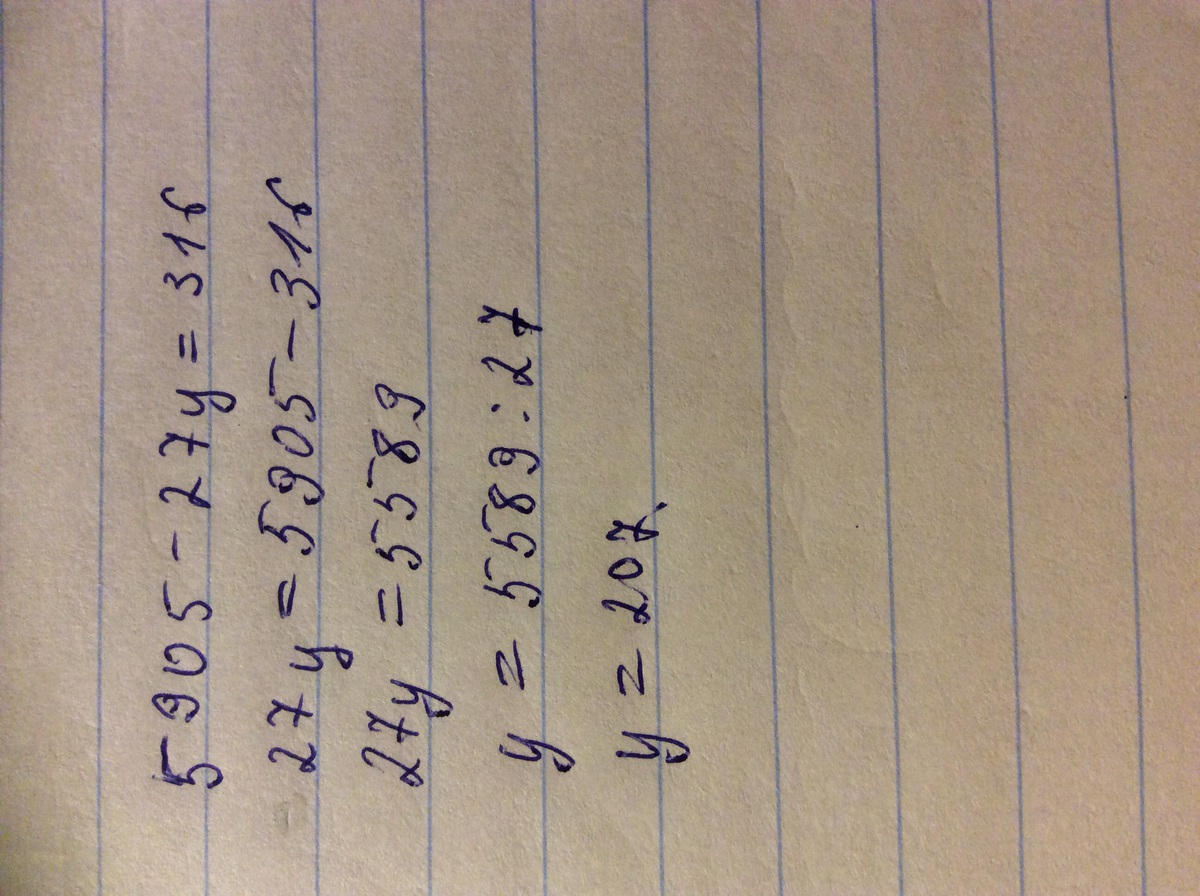 5905 - 27y = 316
27y = 5905 - 316
27y = 5589
y = 5589 : 27
y = 207.